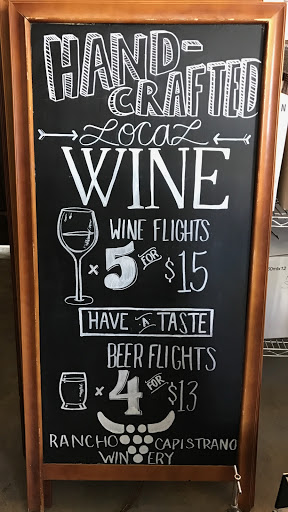 HAND-
CRAFTED
LOCAL
WINE
WINE FLIGHTS
x 5 FOR $15
HAVE A TASTE
BEER FLIGHTS
x 4 FOR $13
RANCHO CAPISTRANO
WINERY